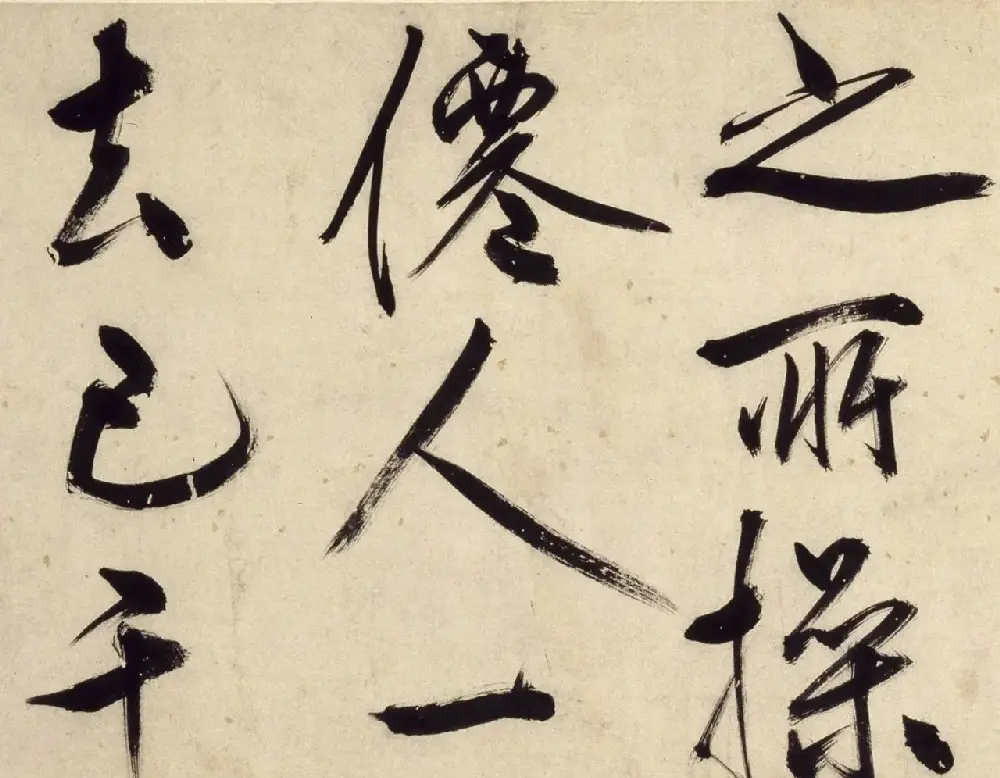 之所操
僊人一
去已千